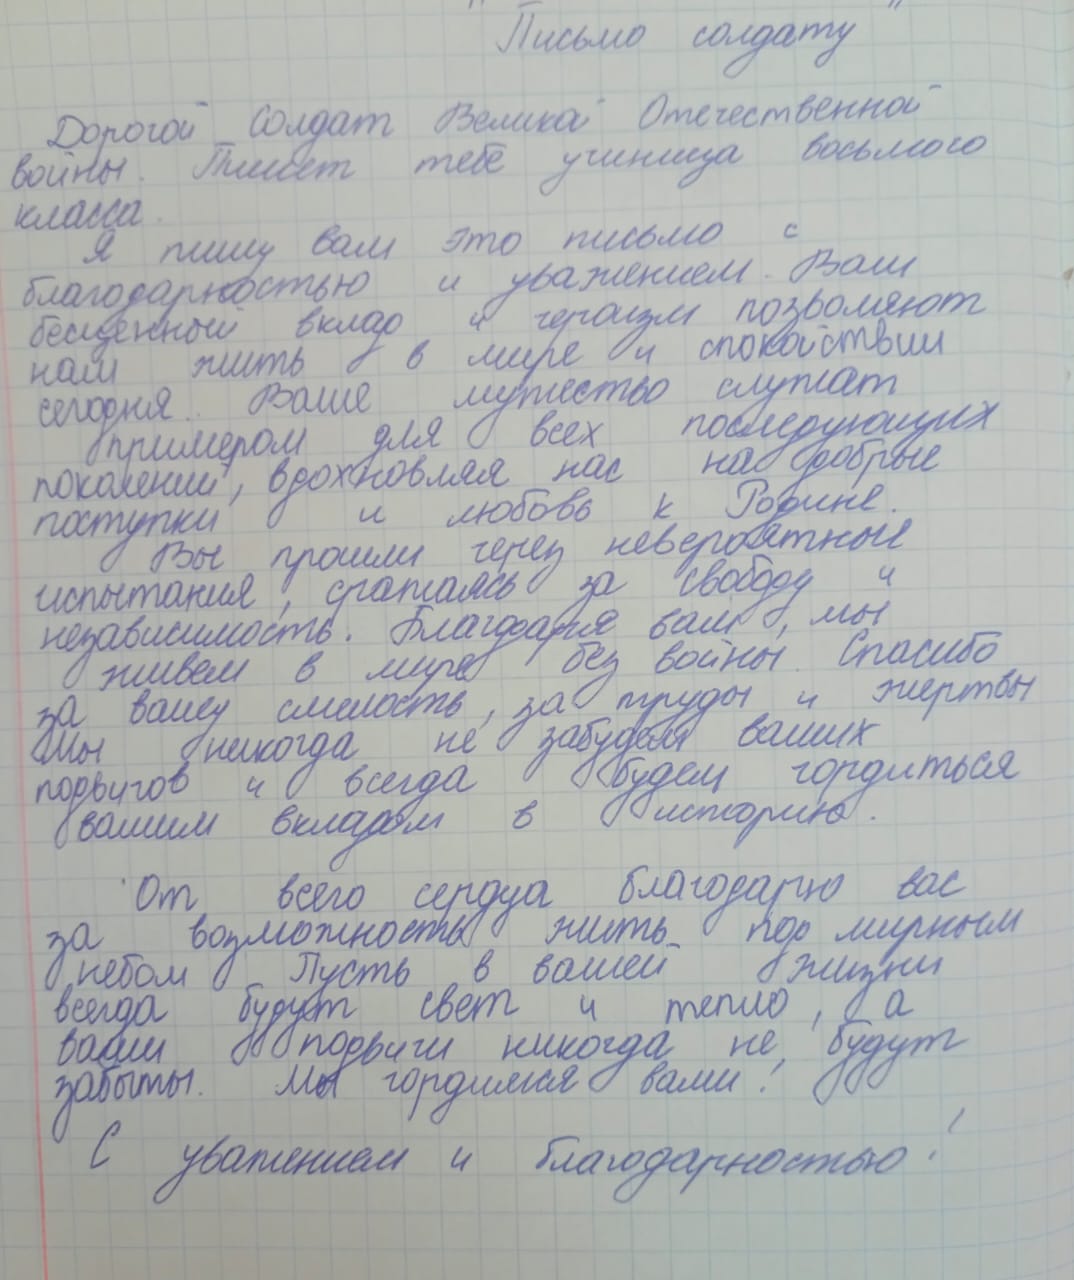 "Письмо солдату"
Дорогой Солдат Великой Отечественной
войны. Пишет тебе учиница восьмого
класса.
Я пишу вам это письмо с
благодарностью и уважением. Ваш
бесценный вклад и героизм позволяют
нам жить в мире и спокойствии
сегодня. Ваше мужество служат
примером для всех последующих
поколений, вдохновляя нас на добрые
поступки и любовь к Родине.
Вы прошли через невероятные
испытания, сражаясь за свободу и
независимость. Благодаря вам, мы
живем в мире без войны. Спасибо
за вашу смелость, за труды и жертвы
Мы никогда не забудем ваших
подвигов и всегда будем гордиться
вашим вкладом в историю.
От всего сердца благодарю вас
за возможность жить под мирным
небом Пусть в вашей жизни
всегда будут свет и тепло, а
ваши подвиги никогда не будут
забыты. Мы гордимся вами!
С уважением и благодарностью!